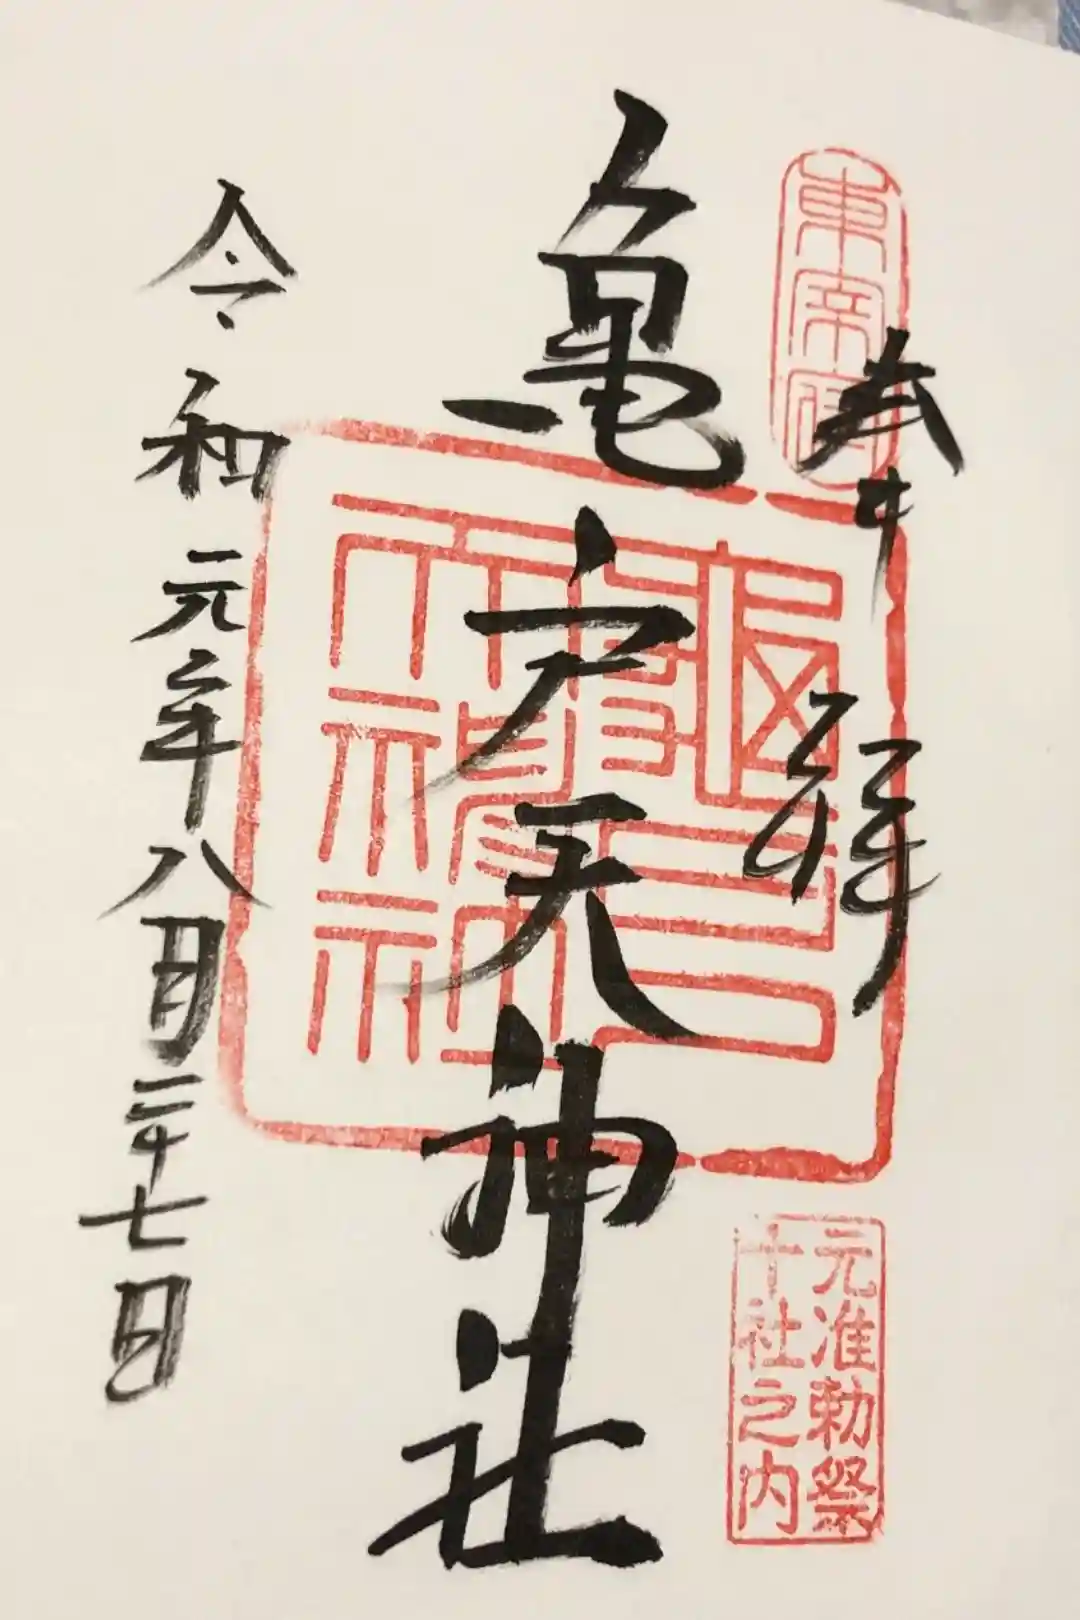 奉拝
亀戸天神社
令和元年八月二十七日
東宰府
亀戸天満宮神社
元准勅祭
十社之内